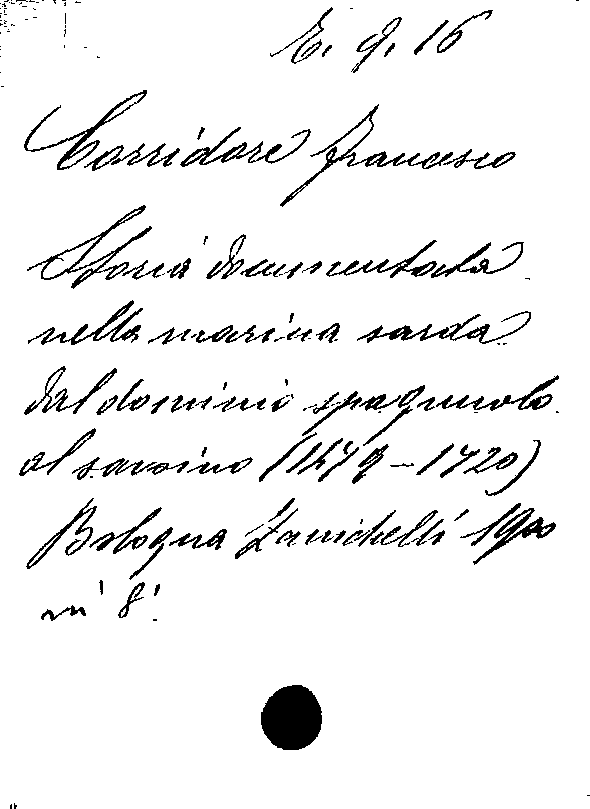 E. 9. 16
Corridore Francesco
Storia documentata
nella marina sarda
dal dominio spagnuolo
al savoino (1479-1720)
Bologna Zanichelli 1900
in 8.